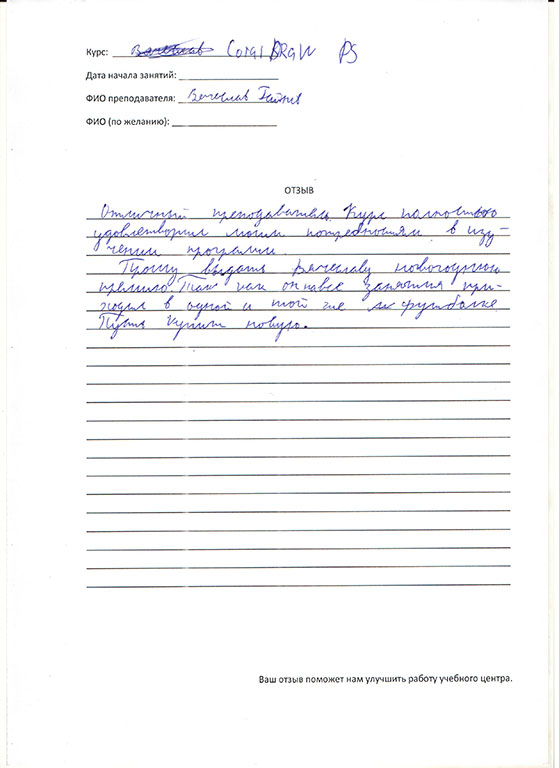 Курс: Coral DRAW PS
Дата начала занятий:
ФИО преподавателя: Вячеслав
ФИО (по желанию):
ОТЗЫВ
Отличный преподаватель. Курс полностью
удовлетворил моим потребностям в изу-
чении программ.
Прошу выдать Вячеславу новогоднюю
премию. Так как он на все занятия при-
ходил в одной и той же футболке
Пусть купит новую.
Ваш отзыв поможет нам улучшить работу учебного центра.